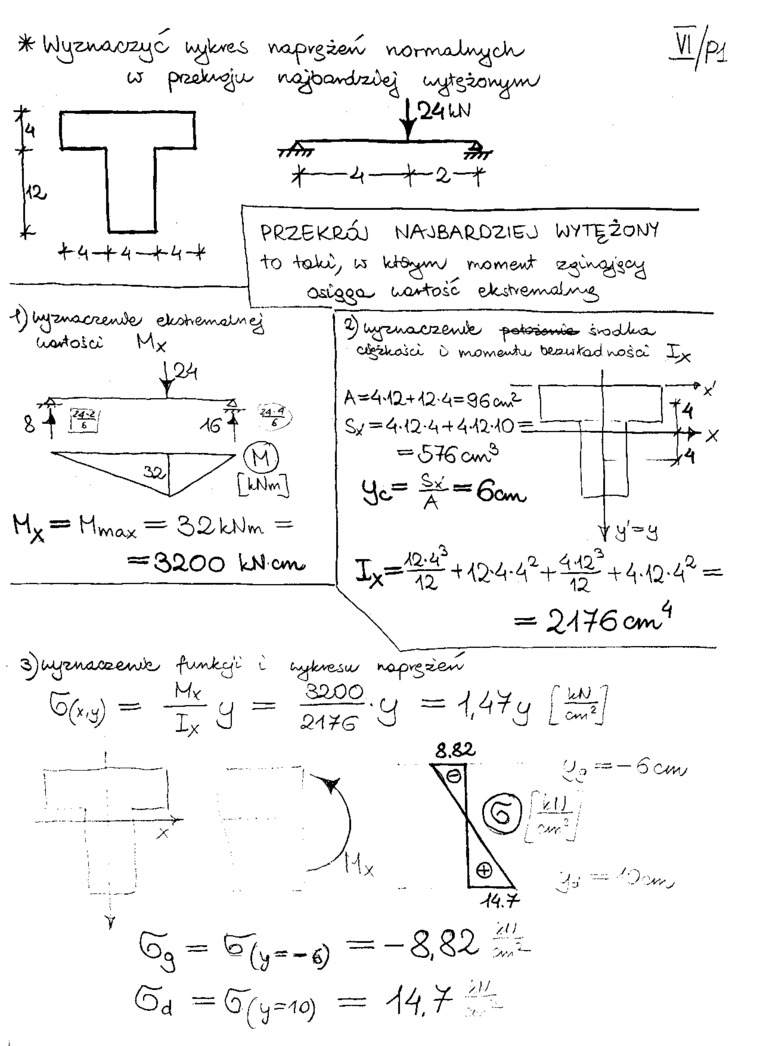 * Wyznaczyć wykres naprężeń normalnych
w przekroju najbardziej wytężonym
VI/P1
4
12
4 4 4
24 kN
4 2
PRZEKRÓJ NAJBARDZIEJ WYTĘŻONY
to taki, w którym moment zginający
osiąga wartość ekstremalną
1) wyznaczenie ekstremalnej
wartości Mx
24
8 24·2/6 16 24·4/6
32 M
[kNm]
Mx = Mmax = 32 kNm =
= 3200 kN·cm
2) wyznaczenie położenia środka
ciężkości i momentu bezwładności Ix
A = 4·12 + 12·4 = 96 cm²
Sx' = 4·12·4 + 4·12·10 =
= 576 cm³
yc = Sx'/A = 6cm
x'
4
x
4
y'=y
Ix = 12·4³/12 + 12·4·4² + 4·12³/12 + 4·12·4² =
= 2176 cm⁴
3) wyznaczenie funkcji i wykresu naprężeń
σ(x,y) = Mx/Ix y = 3200/2176 · y = 1,47y [kN/cm²]
x
Mx
8.82
⊖
σ [kN/cm²]
⊕
14.7
yg = -6cm
yd = 10cm
σg = σ(y=-6) = -8,82 kN/cm²
σd = σ(y=10) = 14,7 kN/cm²